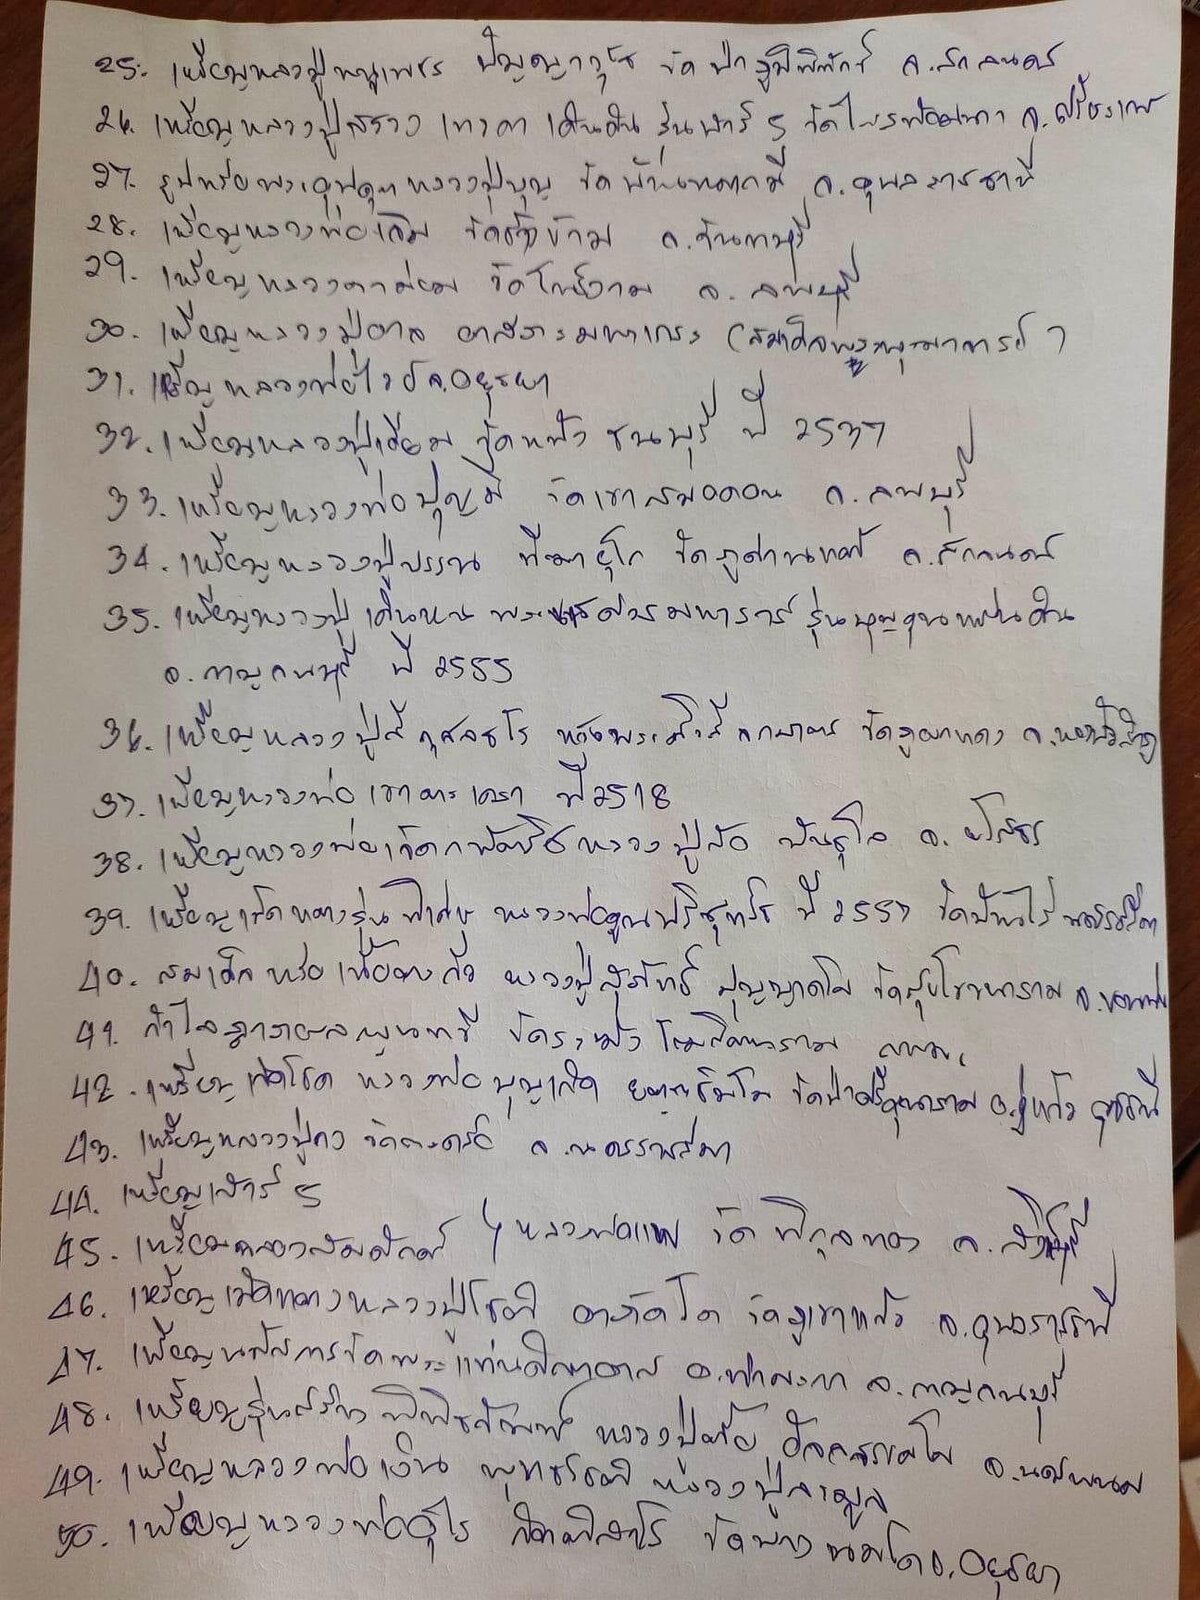 25. เหรียญหลวงปู่หนูเพชร ปัญญาวุโธ วัดป่าภูมิพิทักษ์ จ.สกลนคร
26. เหรียญหลวงปู่สรวง เทวดา เดินดิน รุ่นเสาร์ 5 วัดไพรพัฒนา จ.ศรีสะเกษ
27. รูปหล่อพระอุปคุต หลวงปู่บุญ วัด จ.อุบลราชธานี
28. เหรียญหลวงพ่อเติม วัดช้างข้าม จ.จันทบุรี
29. เหรียญหลวงตาม่อม วัดโพธิ์งาม จ.ลพบุรี
30. เหรียญหลวงปู่อาจ อาสภะมหาเถระ (สมเด็จพระพุฒาจารย์)
31. เหรียญหลวงพ่อไวย์ จ.อยุธยา
32. เหรียญหลวงปู่เอี่ยม วัดหนัง ธนบุรี ปี 2537
33. เหรียญหลวงพ่อบุญมี วัดเขาสมอคอน จ.ลพบุรี
34. เหรียญหลวงปู่บรรณ ทีฆายุโก วัดภูด่านแต้ จ.สกลนคร
35. เหรียญหลวงปู่เดินหน พระนเรศวรมหาราช รุ่นบุญคุณแผ่นดิน
จ.กาญจนบุรี ปี 2555
36. เหรียญหลวงปู่สี กุสลธโร วัดภูผาแดง จ.หนองบัวลำภู
37. เหรียญหลวงพ่อเขาตะเครา ปี 2518
38. เหรียญหลวงพ่อเจ็ดกษัตริย์ หลวงปู่สอ พันธุโล จ.ยโสธร
39. เหรียญเม็ดแตงรุ่นพิเศษ หลวงพ่อคูณปริสุทโธ ปี 2557 วัดบ้านไร่ นครราชสีมา
40. สมเด็จหล่อเนื้อตะกั่ว หลวงปู่สุภัทร์ ปุญญาคโม วัดสุขโขจนาราม จ.ขอนแก่น
41. กำไล พูนทวี วัดระฆังโฆสิตาราม กทม.
42. เหรียญเปิดโชค หลวงพ่อบุญเกิด วัดป่าศรีคุณาราม อ.กู่แก้ว อุดรธานี
43. เหรียญหลวงปู่คง วัดตะคร้อ จ.นครราชสีมา
44. เหรียญเสาร์ 5
45. เหรียญฉลองสมณศักดิ์ } หลวงพ่อแพ วัดพิกุลทอง จ.สิงห์บุรี
46. เหรียญเม็ดแตงหลวงปู่โชติ อาภัคโค วัดภูเขาแก้ว จ.อุบลราชธานี
47. เหรียญนมัสการวัดพระแท่นดงรัง อ.ท่ามะกา จ.กาญจนบุรี
48. เหรียญรุ่นสร้างพิพิธภัณฑ์ หลวงปู่ตือ อัจลธมฺโม จ.นครพนม
49. เหรียญหลวงพ่อเงิน พุทธโชติ หลวงปู่ลำมูล
50. เหรียญหลวงพ่ออุไร กิตติสาโร วัดบางนมโค จ.อยุธยา